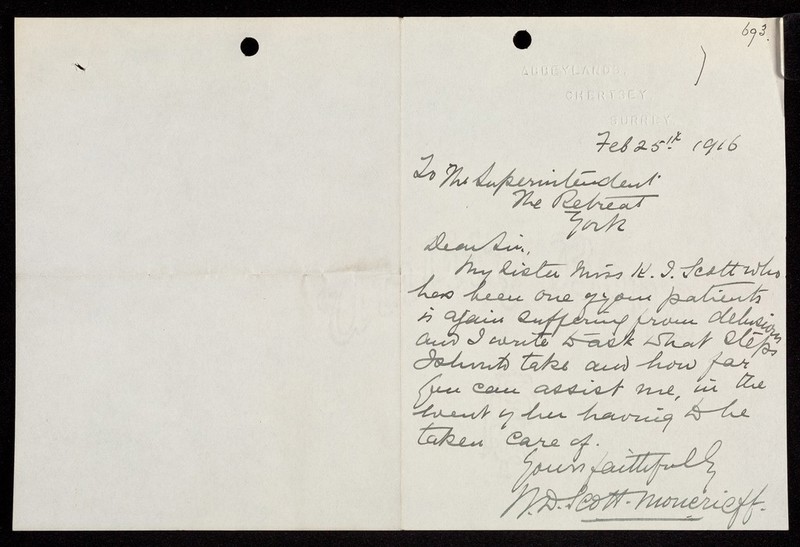 693.
ABBEYLANDS,
CHERTSEY,
SURREY.
Feb 25th 1916
To The Superintendent
The Retreat
York
Dear Sir,
My sister Miss K. I. Scott who
has been one of your patients
is again suffering from delusions
and I write to ask what steps
I should take and how far
you can assist me, in the
event of her having to be
taken care of.
Yours faithfully
W. D. Scott-Moncrieff.